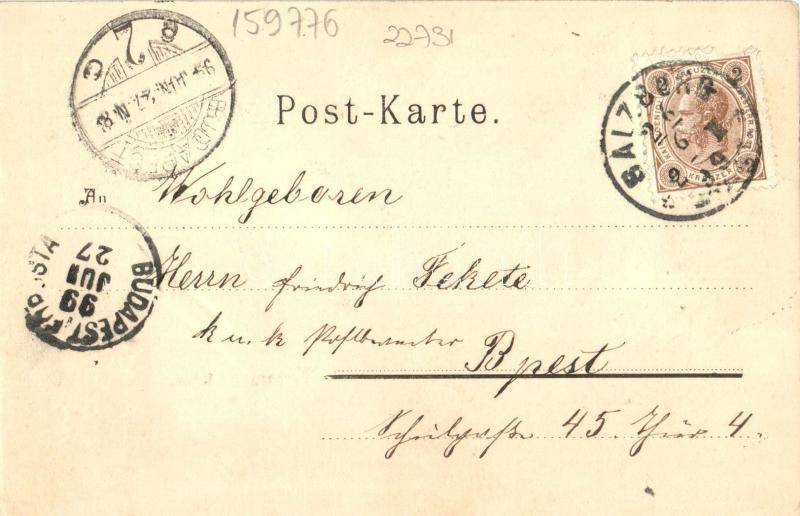 159776
22731
Post-Karte.
An Wohlgeboren
Herrn Friedrich Fekete
k u. k Postbeamter
Bpest
45. Thür 4.
SALZBURG
2 2
KREUZER
BUDAPEST
BUDAPEST
99
JUN
27